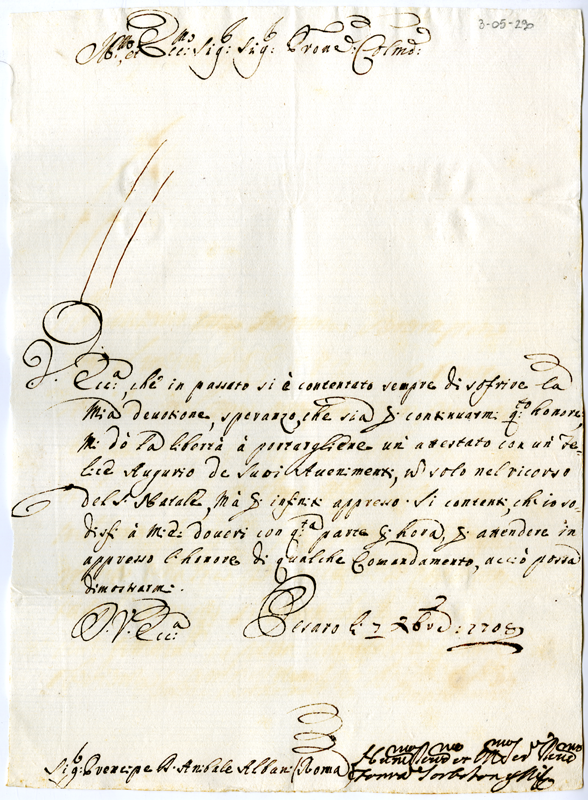 3-05-230
Ill:mo et Ecc:mo Sig:r Sig:r Pron: Colmo:
V. Ecc:a, che in passato si è contentato sempre di sofrire la
Mia devotione, speranzo, che sia p. continuarmi q:to honore,
Mi dò la libertà à portargliene un' attestato con un' fe-
lice Augurio de Suoi Avenimenti, nõ solo nel ricorso
del S. Natale, Mà p. infiniti appresso. Si contenti, ch'io so-
disfi à Miei doveri con q:ta parte p. hora, p. attendere in
appresso l'honore di qualche Comandamento, acciò possa
dimostrarmi.
D. V. Ecc:a
Pesaro li 7 Xbre: 1708
Sig:r Prencipe D. Anibale Albani Roma